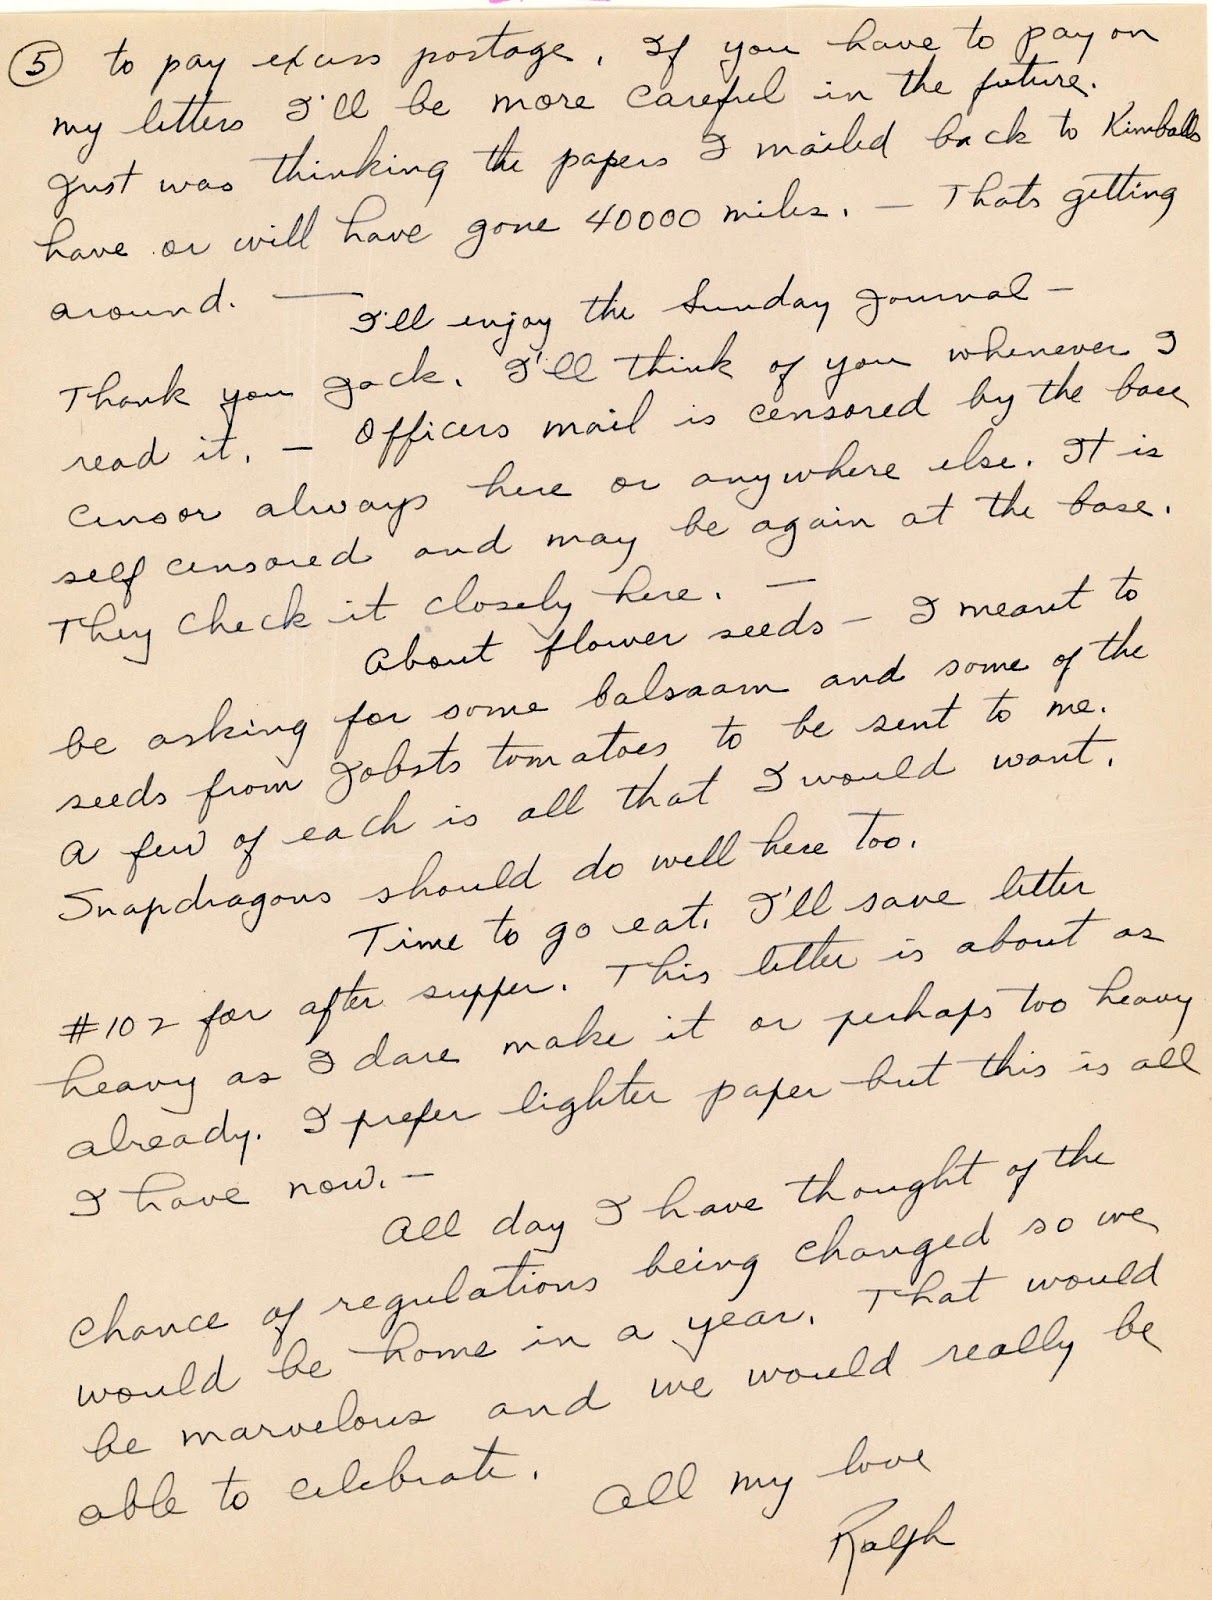 5 to pay excess postage. If you have to pay on
my letters I'll be more careful in the future.
Just was thinking the papers I mailed back to Kimballs
have or will have gone 40000 miles. — Thats getting
around. —
I'll enjoy the Sunday Journal —
Thank you Jack. I'll think of you whenever I
read it. — Officers mail is censored by the base
censor always here or anywhere else. It is
self censored and may be again at the base.
They check it closely here. —
About flower seeds — I meant to
be asking for some balsaam and some of the
seeds from Jobsts tomatoes to be sent to me.
A few of each is all that I would want.
Snapdragons should do well here too.
Time to go eat. I'll save letter
#102 for after supper. This letter is about as
heavy as I dare make it or perhaps too heavy
already. I prefer lighter paper but this is all
I have now. —
All day I have thought of the
chance of regulations being changed so we
would be home in a year. That would
be marvelous and we would really be
able to celebrate.
All my love
Ralph